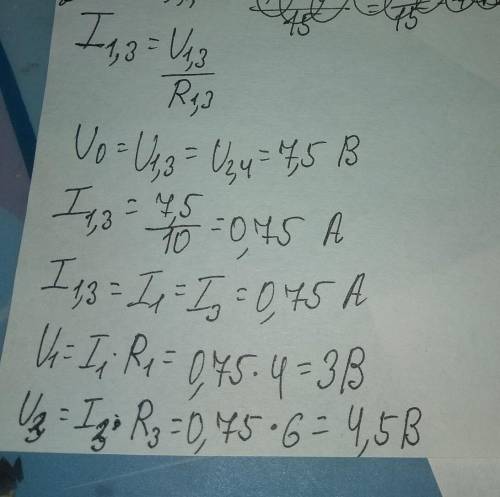 I₁,₃ = U₁,₃ / R₁,₃
U₀ = U₁,₃ = U₂,₄ = 7,5 В
I₁,₃ = 7,5 / 10 = 0,75 А
I₁,₃ = I₁ = I₃ = 0,75 А
U₁ = I₁ · R₁ = 0,75 · 4 = 3В
U₃ = I₃ · R₃ = 0,75 · 6 = 4,5В